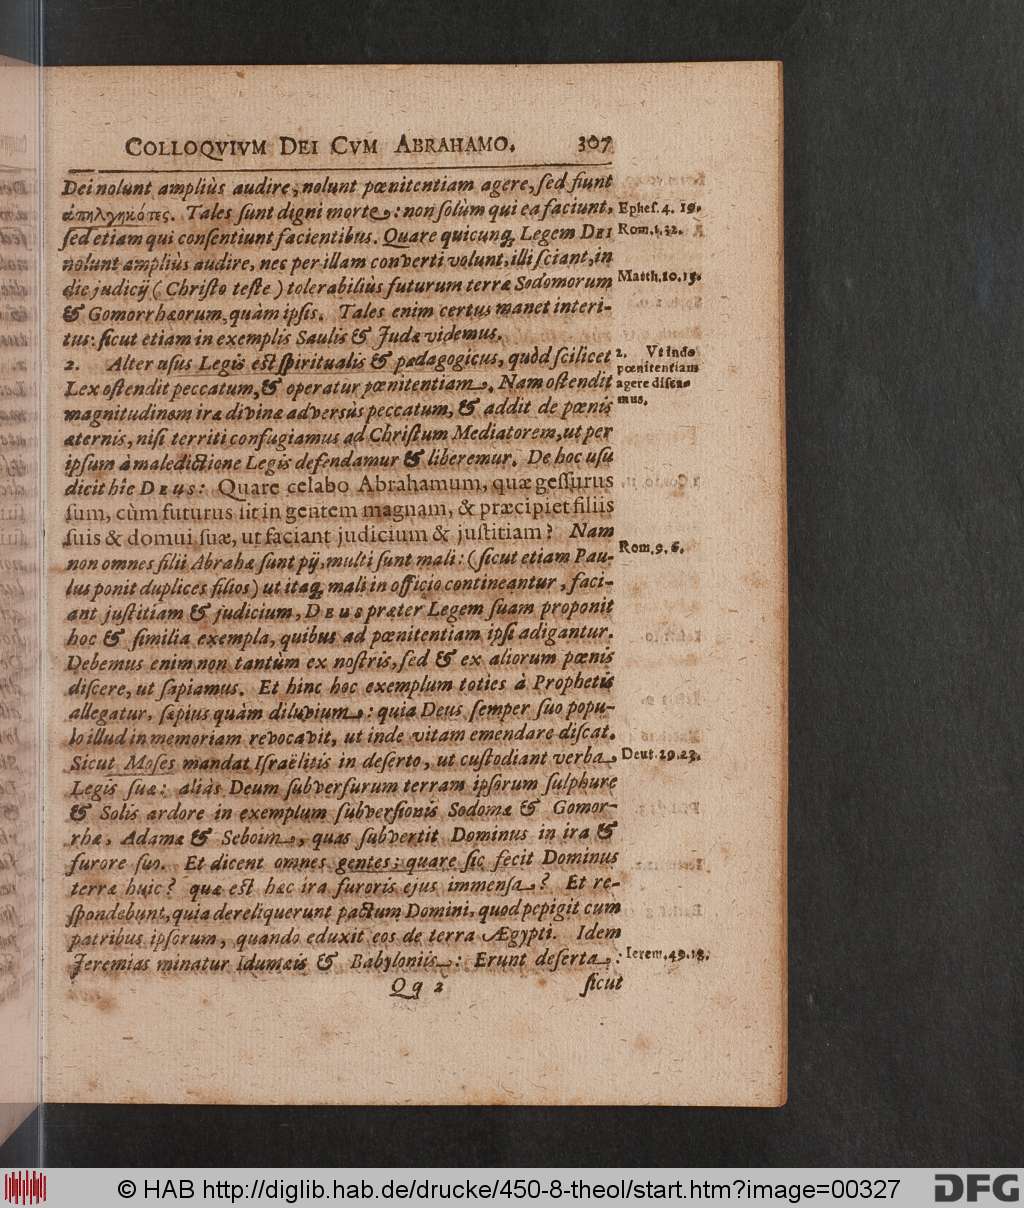 COLLOQVIVM DEI CVM ABRAHAMO. 307
Dei nolunt ampliùs audire, nolunt pœnitentiam agere, ſed fiunt
ἀπηλγηκότες. Tales ſunt digni morte: non ſolùm qui ea faciunt, Epheſ. 4. 19.
ſed etiam qui conſentiunt facientibus. Quare quicunq; Legem DEI Rom. 1. 32.
nolunt ampliùs audire, nec per illam converti volunt, illi ſciant, in
die judicij (Chriſto teſte) tolerabiliùs futurum terræ Sodomorum Matth. 10. 15.
& Gomorrhæorum, quàm ipſis. Tales enim certus manet interi-
tus: ſicut etiam in exemplis Saulis & Judæ videmus.
2. Alter uſus Legis eſt ſpiritualis & pædagogicus, quòd ſcilicet 2. Vt inde
Lex oſtendit peccatum, & operatur pœnitentiam. Nam oſtendit pœnitentiam
agere diſca-
magnitudinem iræ divinæ adversùs peccatum, & addit de pœnis mus.
æternis, niſi territi confugiamus ad Chriſtum Mediatorem, ut per
ipſum à maledictione Legis defendamur & liberemur. De hoc uſu
dicit hîc DEUS: Quare celabo Abrahamum, quæ geſſurus
ſum, cùm futurus ſit in gentem magnam, & præcipiet filiis
ſuis & domui ſuæ, ut faciant judicium & juſtitiam? Nam
non omnes filii Abrahæ ſunt pij, multi ſunt mali: (ſicut etiam Pau- Rom. 9. 6.
lus ponit duplices filios) ut itaq; mali in officio contineantur, faci-
ant juſtitiam & judicium, DEUS præter Legem ſuam proponit
hoc & ſimilia exempla, quibus ad pœnitentiam ipſi adigantur.
Debemus enim non tantùm ex noſtris, ſed & ex aliorum pœnis
diſcere, ut ſapiamus. Et hinc hoc exemplum toties à Prophetis
allegatur, ſæpius quàm diluvium: quia Deus ſemper ſuo popu-
lo illud in memoriam revocavit, ut inde vitam emendare diſcat.
Sicut Moſes mandat Iſraëlitis in deſerto, ut cuſtodiant verba Deut. 29. 23.
Legis ſuæ: aliàs Deum ſubverſurum terram ipſorum ſulphure
& Solis ardore in exemplum ſubverſionis Sodomæ & Gomor-
rhæ, Adamæ & Seboim, quas ſubvertit Dominus in ira &
furore ſuo. Et dicent omnes gentes; quare ſic fecit Dominus
terræ huic? quæ eſt hæc ira furoris ejus immenſa? Et re-
ſpondebunt, quia dereliquerunt pactum Domini, quod pepigit cum
patribus ipſorum, quando eduxit eos de terra Ægypti. Idem
Jeremias minatur Idumæis & Babyloniis: Erunt deſerta: Ierem. 49. 18.
Qq 2 ſicut
© HAB http://diglib.hab.de/drucke/450-8-theol/start.htm?image=00327
DFG